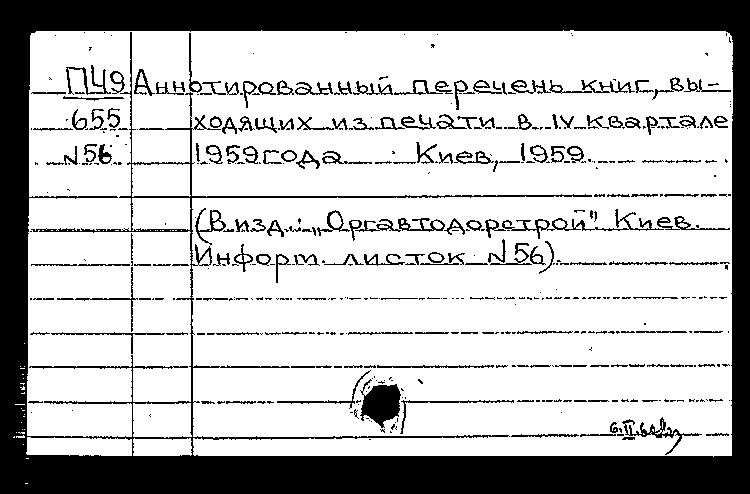 П49 Аннотированный перечень книг, вы-
655 ходящих из печати в IV квартале
N56 1959 года. Киев, 1959.
(В изд.: „Оргавтодорстрой". Киев.
Информ. листок N56).
6.II.60